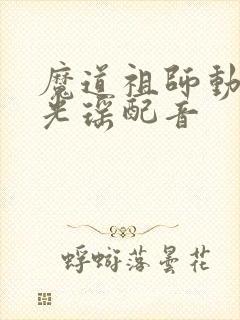 魔道祖師動
光瑤配音
蜉蝣落曇花